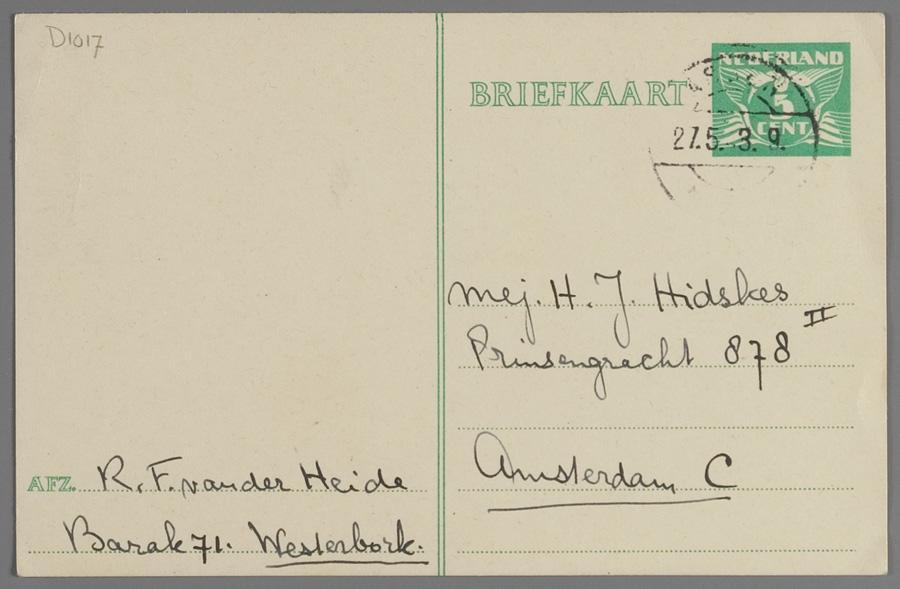 D1017
BRIEFKAART
NEDERLAND
5
CENT
27.5.-3. 9.
Mej. H. J. Hidskes
Prinsengracht 878 II
Amsterdam C
AFZ. R. F. van der Heide
Barak 71. Westerbork.